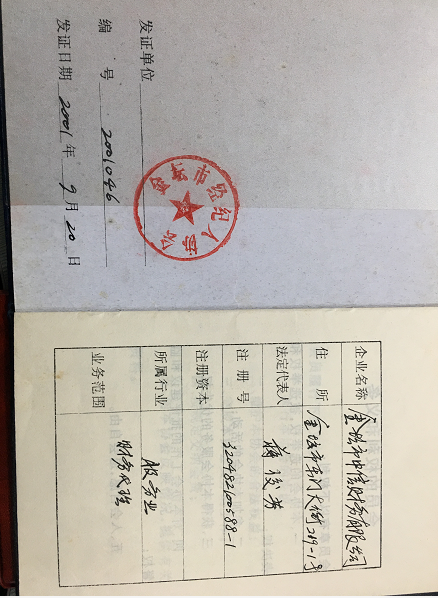 发证单位
编 号 2001046
发证日期 2001年9月20日
市经纪人
企业名称 金坛市中信财务有限公司
住 所 金坛市东门大街219-1号
法定代表人 蒋
注 册 号 320482100588-1
注册资本
所属行业 服务业
业务范围 财务代理